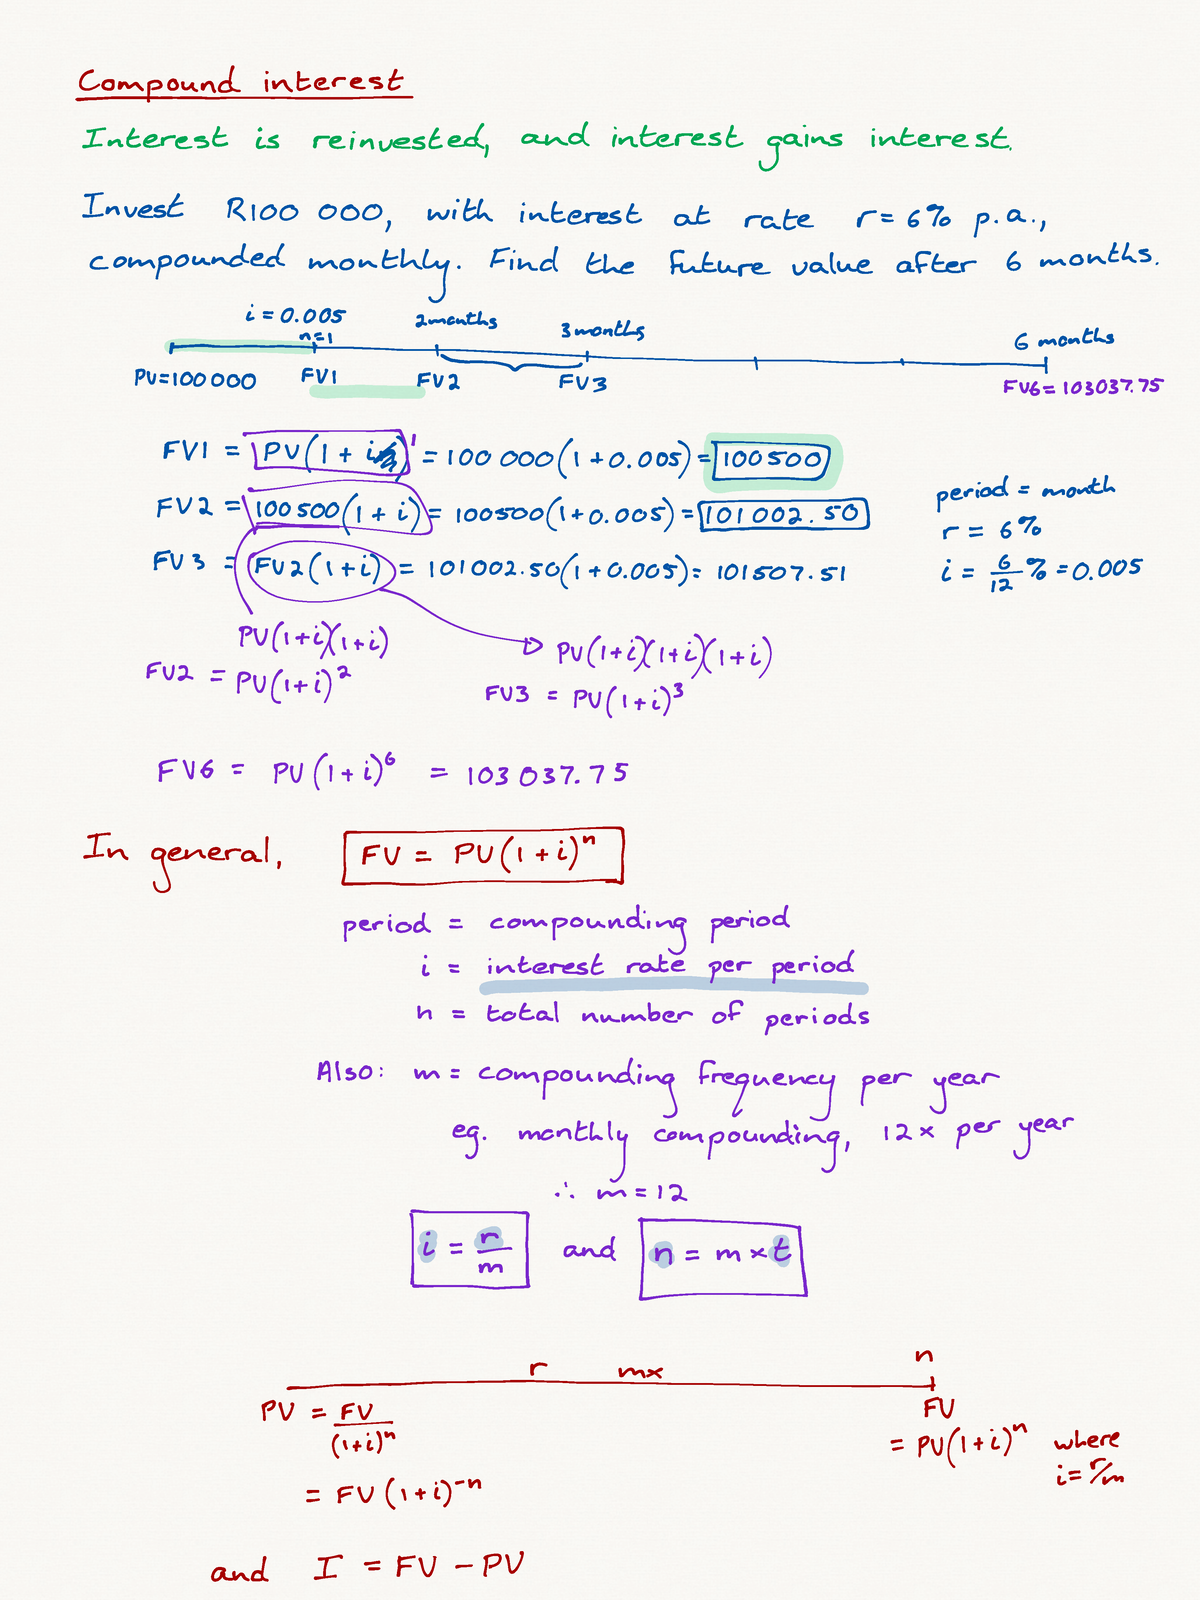 Compound interest
Interest is reinvested, and interest gains interest.
Invest R100 000, with interest at rate r = 6% p.a.,
compounded monthly. Find the future value after 6 months.
i = 0.005
n=1
2 months
3 months
6 months
PV=100000
FV1
FV2
FV3
FV6 = 103037.75
FV1 = PV(1 + i)¹ = 100 000(1+0.005) = 100500
FV2 = 100500(1 + i) = 100500(1+0.005) = 101002.50
FV3 = FV2(1+i) = 101002.50(1+0.005) = 101507.51
period = month
r = 6%
i = 6/12 % = 0.005
PV(1+i)(1+i)
FV2 = PV(1+i)²
PV(1+i)(1+i)(1+i)
FV3 = PV(1+i)³
FV6 = PV(1+i)⁶ = 103037.75
In general, FV = PV(1+i)ⁿ
period = compounding period
i = interest rate per period
n = total number of periods
Also: m = compounding frequency per year
eg. monthly compounding, 12x per year
∴ m=12
i = r/m and n = m×t
r mx n
PV = FV/(1+i)ⁿ
= FV(1+i)⁻ⁿ
FV
= PV(1+i)ⁿ where
i = r/m
and I = FV - PV